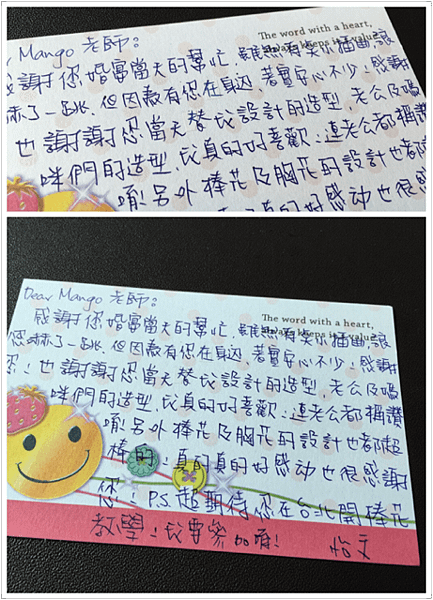 Mango 老師:
The word with a heart,
always keeps is value.
感謝您婚宴當天的幫忙,雖然有些小插曲,讓
嚇了一跳,但因為有您在身邊,著實安心不少,感謝
也謝謝您當天替我設計的造型,老公及媽
咪們的造型,我真的好喜歡!連老公都稱讚
唷!另外捧花及胸花的設計也都
真的好感动也很感
Dear Mango 老師:
The word with a heart,
always keeps is value.
感謝您婚宴當天的幫忙,雖然有些小插曲,讓
您嚇了一跳,但因為有您在身邊,著實安心不少,感謝
您!也謝謝您當天替我設計的造型,老公及媽
咪們的造型,我真的好喜歡!連老公都稱讚
唷!另外捧花及胸花的設計也都超
棒的!真的真的好感动也很感謝
您!P.S.超期待您在台北開捧花
教學!我要參加唷! 怡文